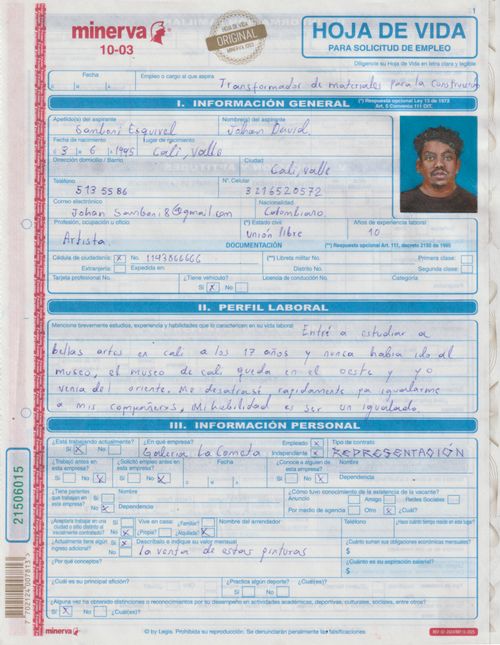 minerva
10-03
HOJA DE VIDA
ORIGINAL
MINERVA 1003
1
HOJA DE VIDA
PARA SOLICITUD DE EMPLEO
Diligencie su Hoja de Vida en letra clara y legible
Fecha
Empleo o cargo al que aspira
Transformador de materiales para la construcción
I. INFORMACIÓN GENERAL
(*) Respuesta opcional Ley 13 de 1972
Art. 5 Convenio 111 OIT.
Apellido(s) del aspirante
Nombre(s) del aspirante
Samboni Esquivel
Johan David.
Fecha de nacimiento
Lugar de nacimiento
3 6 1995 Cali, valle
Dirección domicilio / Barrio
Ciudad
Cali, valle
Teléfono
N°. Celular
513 55 86
3216520572
Correo electrónico
Nacionalidad
Johan Samboni8@gmail.com
Colombiano.
Profesión, ocupación u oficio
(*) Estado civil
Años de experiencia laboral
Artista.
Unión libre
10
DOCUMENTACIÓN
(**) Respuesta opcional Art. 111, decreto 2150 de 1995
Cédula de ciudadanía: X No. 1143866666
(**) Libreta militar No.
Primera clase:
Extranjería: Expedida en:
Distrito No.
Segunda clase:
Tarjeta profesional No.
¿Tiene vehículo?
Licencia de conducción No.
Categoría
Sí X No
II. PERFIL LABORAL
Mencione brevemente estudios, experiencia y habilidades que lo caractericen en su vida laboral
Entré a estudiar a
bellas artes en cali a los 17 años y nunca habia ido al
museo, el museo de cali queda en el oeste y yo
venia del oriente. Me desatrasé rapidamente pa igualarme
a mis compañeros, Mi habilidad es ser un igualado.
III. INFORMACIÓN PERSONAL
¿Está trabajando actualmente?
¿En qué empresa?
Empleado X
Tipo de contrato
Sí X No
Galeria La Cometa
Independiente X
REPRESENTACIÓN
¿Trabajó antes en esta empresa?
¿Solicitó empleo antes en esta empresa?
Fecha
¿Conoce a alguien de esta empresa?
Nombre
Sí No X
Sí No X
Sí No X
Dependencia
¿Tiene parientes que trabajan en esta empresa?
Sí
No
Nombre
Dependencia
¿Cómo tuvo conocimiento de la existencia de la vacante?
Anuncio Amigo Redes Sociales
Por medio de agencia Otro X ¿Cuál?
¿Aceptaría trabajar en una ciudad o sitio distinto al inicialmente contratado?
Sí
No X
Vive en casa: ¿Familiar?
¿Propia? ¿Alquilada? X
Nombre del arrendador
Teléfono
¿Hace cuánto tiempo reside en este lugar?
¿Actualmente tiene algún ingreso adicional?
Sí X
No
Descríbalo e indique su valor mensual
La venta de estas pinturas
¿Cuánto suman sus obligaciones económicas mensuales?
$
¿Por qué conceptos?
¿Cuánto es su aspiración salarial?
$
¿Cuál es su principal afición?
¿Practica algún deporte?
Sí No
¿Cuál(es)?
¿Alguna vez ha obtenido distinciones o reconocimientos por su desempeño en actividades académicas, deportivas, culturales, sociales, entre otros?
Sí X No ¿Cuál(es)?
21506015
minerva
© by Legis. Prohibida su reproducción. Se denunciarán penalmente las falsificaciones.